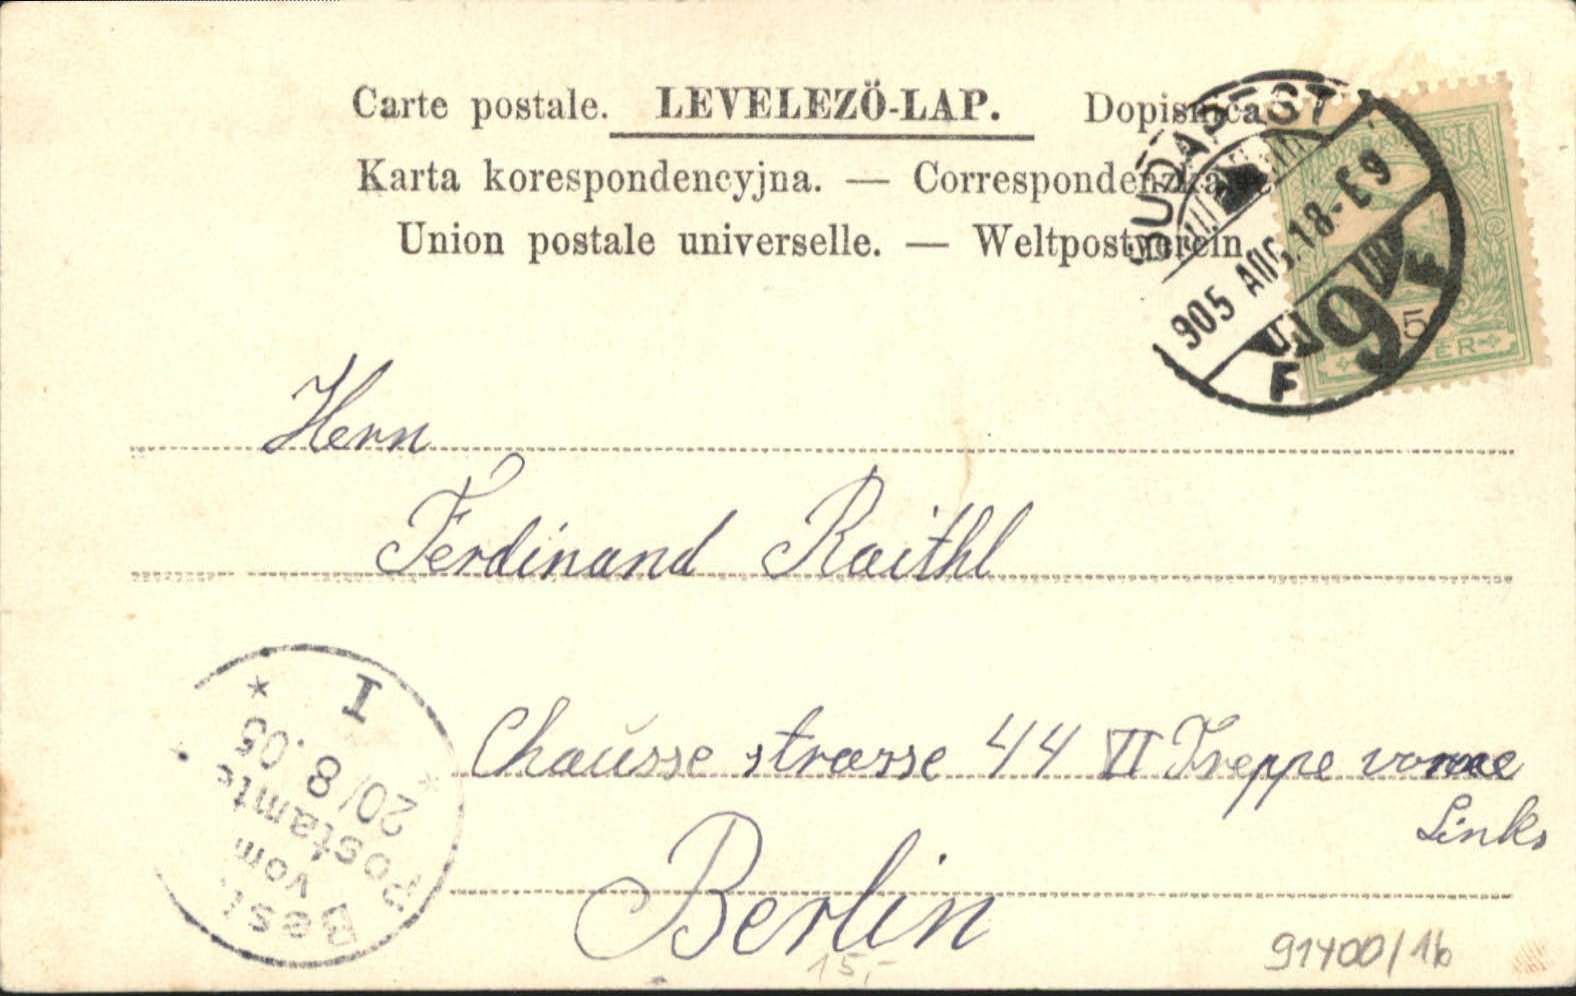 Carte postale. LEVELEZÖ-LAP. Dopisnica
Karta korespondencyjna. — Correspondenzkarte
Union postale universelle. — Weltpostverein
BUDAPEST
905 AUG. 18-É 9
9
F F
5
Herrn
Ferdinand Raithl
Chausse strasse 44 VI Treppe vorne
Links
Berlin
Best.
vom
Postamte
20/8.05
I
15,-
91400/16